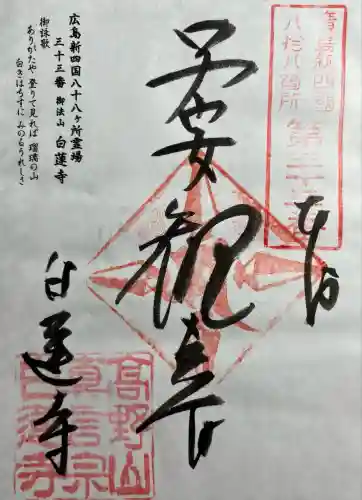 広島新四国八十八ヶ所霊場
三十三番 御法山 白蓮寺
御詠歌
ありがたや 登りて見れば 瑠璃の山
白きはちすに みのるうれしさ
奉拝
子安観音
白蓮寺
広島新四国
八十八ヶ所
第三十三番
高野山
真言宗
白蓮寺